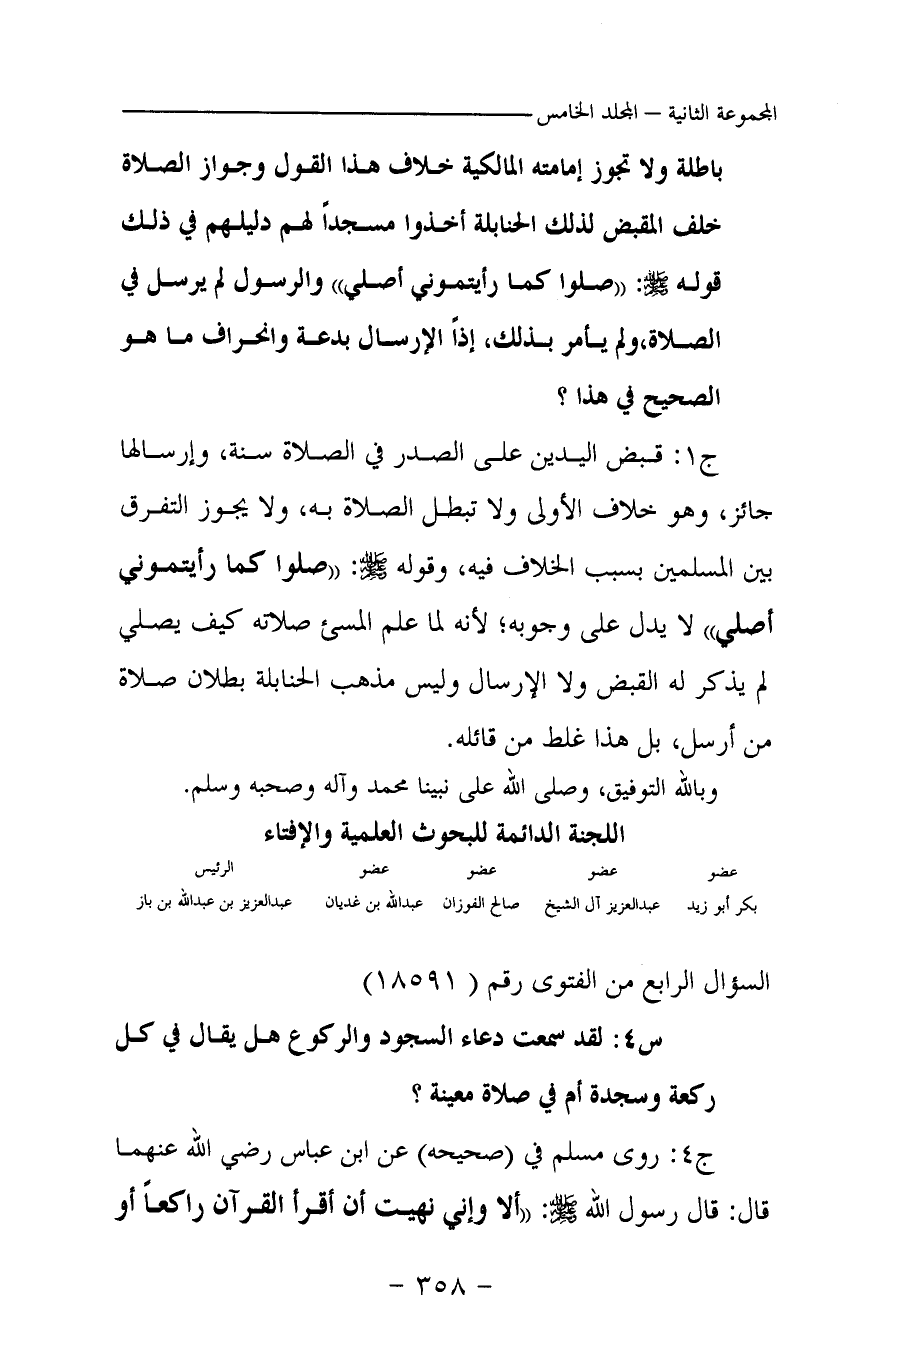 المجموعة الثانية – المجلد الخامس
باطلة ولا تجوز إمامته المالكية خلاف هذا القول وجواز الصلاة
خلف المقبض لذلك الحنابلة أخذوا مسجداً لهم دليلهم في ذلك
قوله ﷺ: ((صلوا كما رأيتموني أصلي)) والرسول لم يرسل في
الصلاة،ولم يأمر بذلك، إذاً الإرسال بدعة وانحراف ما هو
الصحيح في هذا ؟
ج١: قبض اليدين على الصدر في الصلاة سنة، وإرسالها
جائز، وهو خلاف الأولى ولا تبطل الصلاة به، ولا يجوز التفرق
بين المسلمين بسبب الخلاف فيه، وقوله ﷺ: ((صلوا كما رأيتموني
أصلي)) لا يدل على وجوبه؛ لأنه لما علم المسئ صلاته كيف يصلي
لم يذكر له القبض ولا الإرسال وليس مذهب الحنابلة بطلان صلاة
من أرسل، بل هذا غلط من قائله.
وبالله التوفيق، وصلى الله على نبينا محمد وآله وصحبه وسلم.
اللجنة الدائمة للبحوث العلمية والإفتاء
عضو عضو عضو عضو الرئيس
بكر أبو زيد عبدالعزيز آل الشيخ صالح الفوزان عبدالله بن غديان عبدالعزيز بن عبدالله بن باز
السؤال الرابع من الفتوى رقم ( ١٨٥٩١)
س٤: لقد سمعت دعاء السجود والركوع هل يقال في كل
ركعة وسجدة أم في صلاة معينة ؟
ج٤: روى مسلم في (صحيحه) عن ابن عباس رضي الله عنهما
قال: قال رسول الله ﷺ: ((ألا وإني نهيت أن أقرأ القرآن راكعاً أو
– ٣٥٨ –